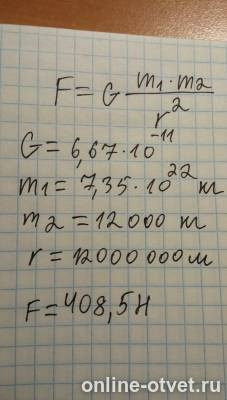 F = G m₁·m₂ / r²
G = 6,67·10⁻¹¹
m₁ = 7,35·10²² кг
m₂ = 12000 кг
r = 12000 000 м
F = 408,5 Н
online-otvet.ru